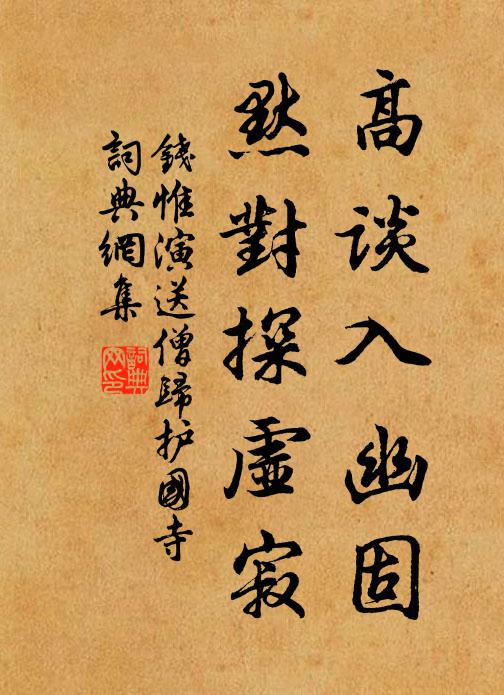 高谈入幽固
默對探虛寂
錢惟演送僧歸护國寺
詞典網集
詞典網印